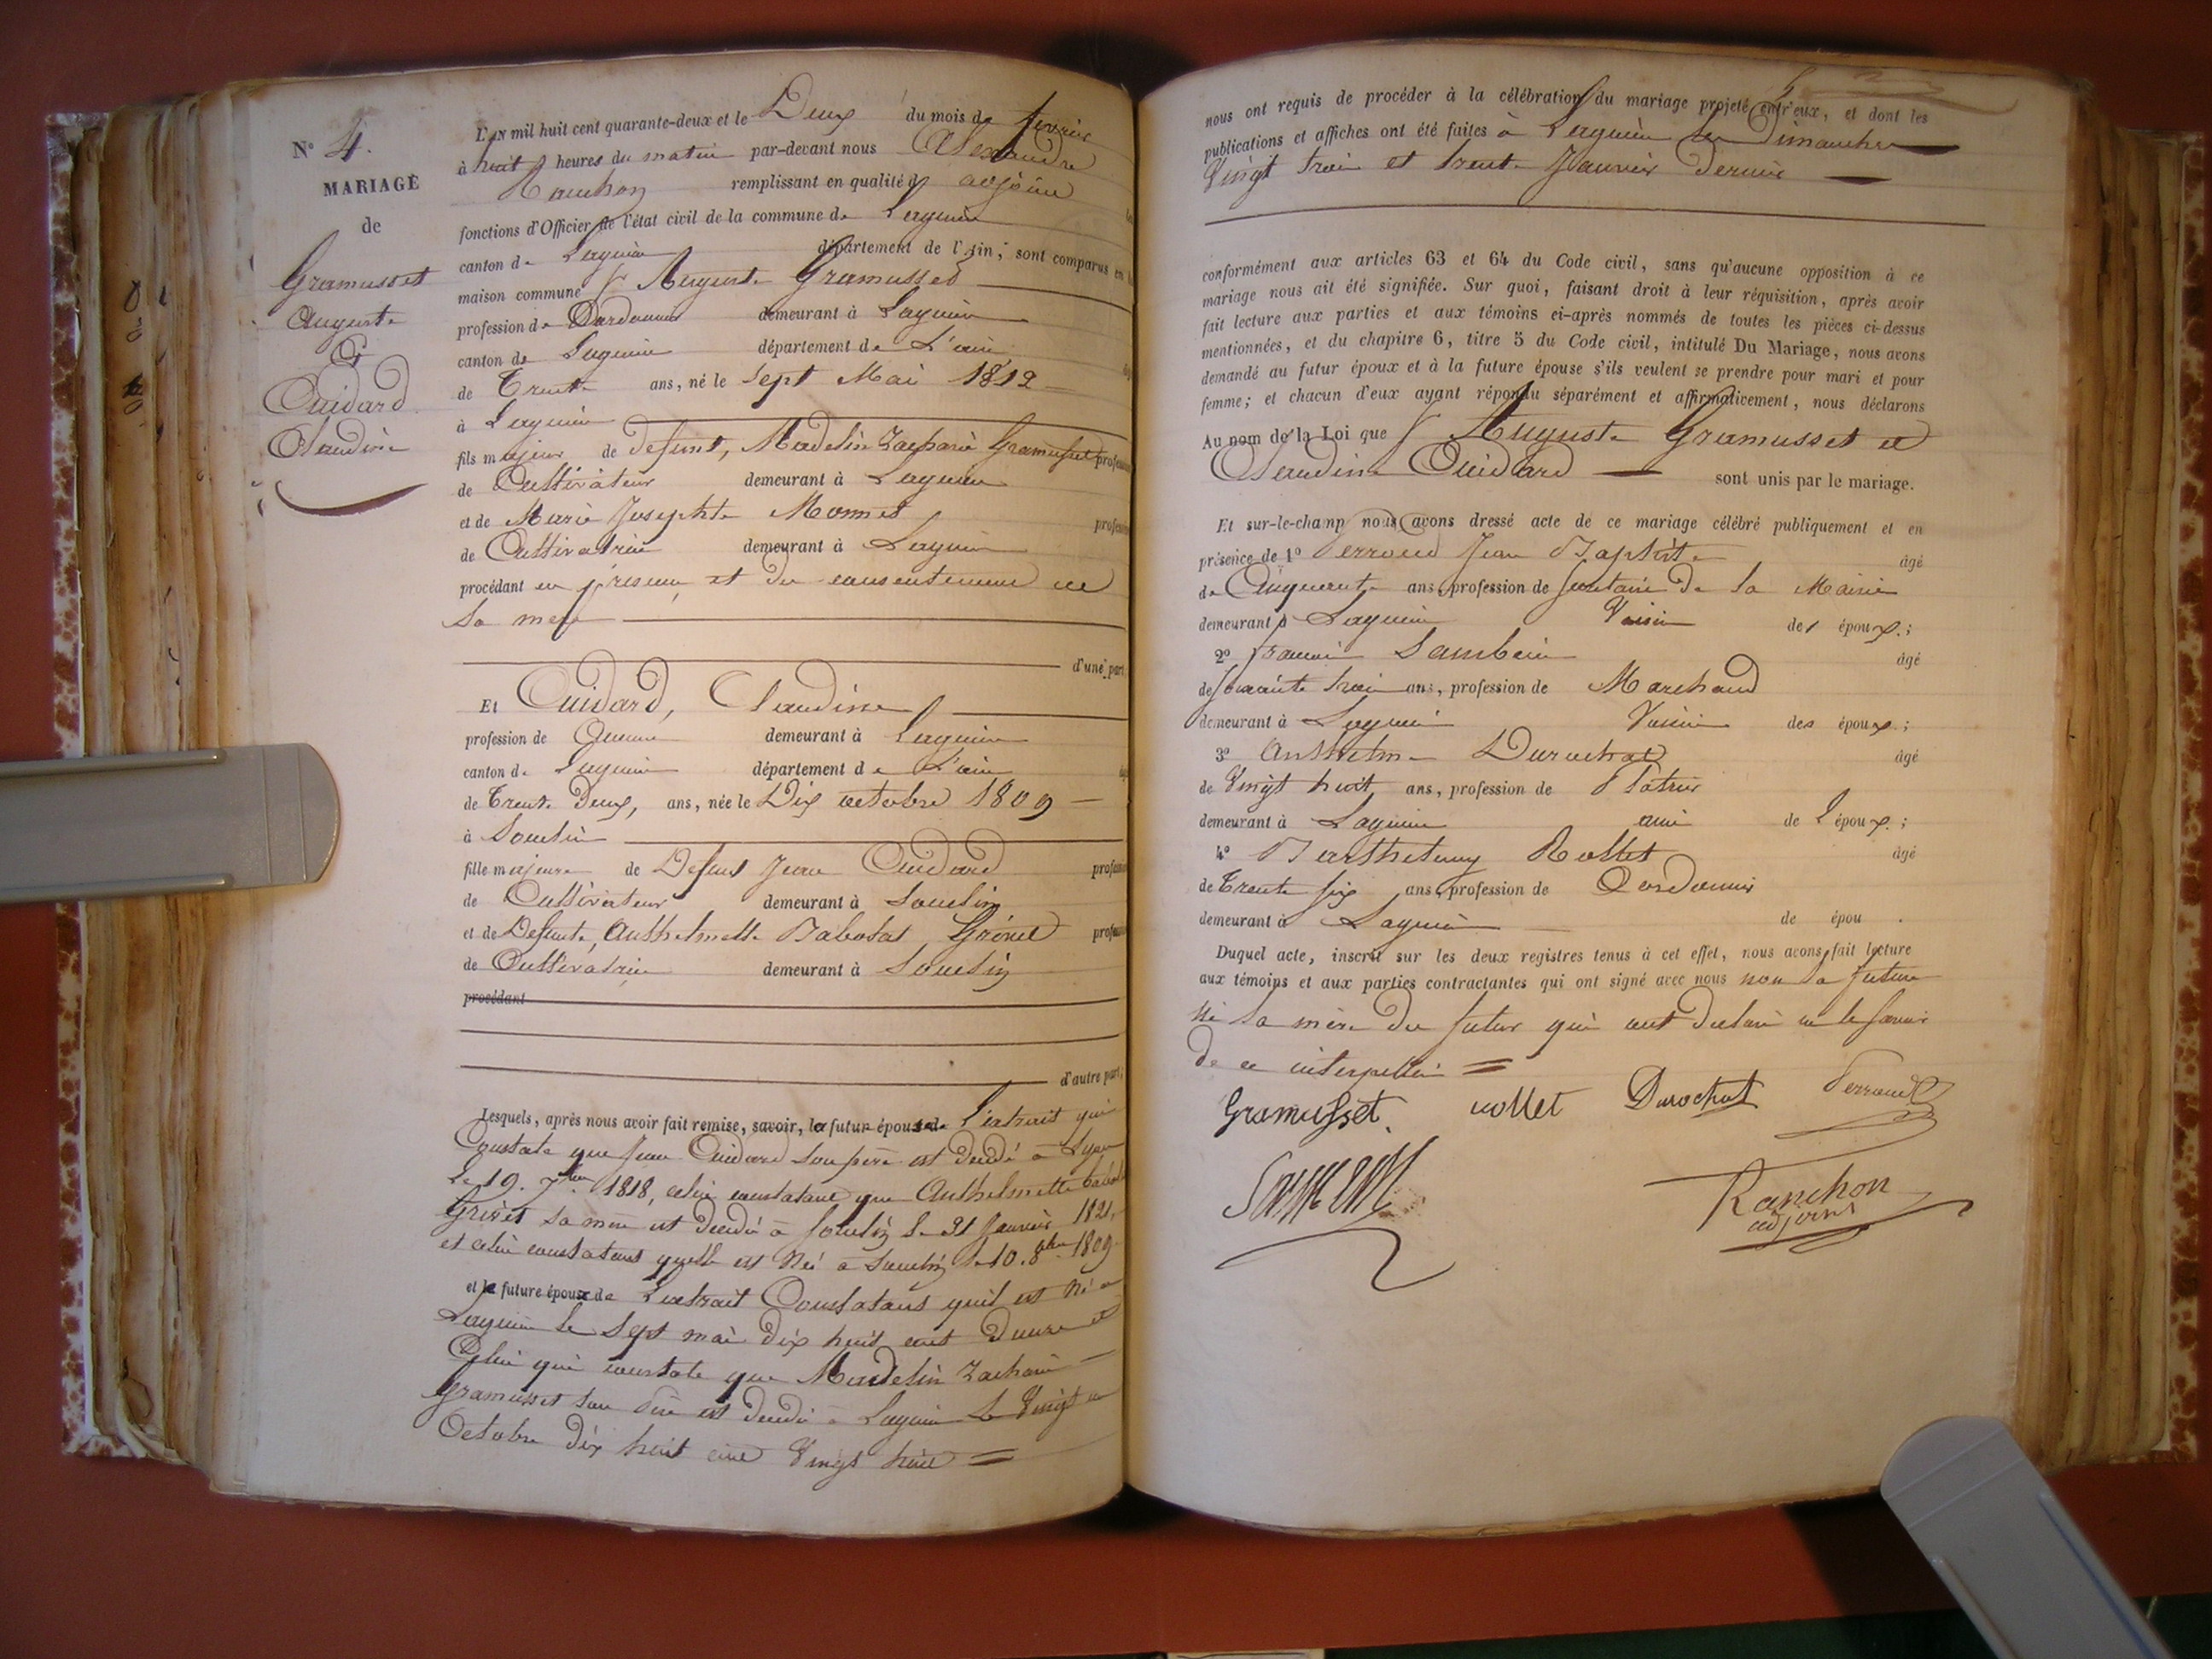 N° 4.
MARIAGE
de
Gramusset
Auguste
&
Cuidard
Claudine
L'AN mil huit cent quarante-deux et le Deux du mois de fevrier
à huit heures du matin par-devant nous Alexandre
Ranchon remplissant en qualité d'adjoint
fonctions d'Officier de l'état civil de la commune de Lagnieu
canton de Lagnieu département de l'Ain, sont comparus en la
maison commune Auguste Gramusset
profession de Cordonnier demeurant à Lagnieu
canton de Lagnieu département de L'ain
de Trente ans, né le sept Mai 1812
à Lagnieu
fils majeur de defunt, Madelin Zacharie Gramusset profession
de Cultivateur demeurant à Lagnieu
et de Marie Josephte Monnet profession
de Cultivatrice demeurant à Lagnieu
procédant en presence et du consentement de
sa mere
d'une part,
Et Cuidard, Claudine
profession de demeurant à Lagnieu
canton de Lagnieu département de L'ain
de Trente Deux, ans, née le Dix octobre 1809
à Souclin
fille majeure de Defunt Jean Cuidard profession
de Cultivateur demeurant à Souclin
et de Defunte, Anthelmette Babolat Grivet profession
de Cultivatrice demeurant à Souclin
procédant
d'autre part;
Lesquels, après nous avoir fait remise, savoir, la future épouse de L'extrait qui
Constate que Jean Cuidard son père est decedé à Lyon
le 19. 7bre 1818, celui constatant que Anthelmette babolat
Grivet sa mère est decedé à Souclin le 31 Janvier 1821,
et celui constatant quelle est Née à Souclin le 10. 8bre 1809.
et le future époux de L'extrait Constatant quil est Né à
Lagnieu le sept mai dix huit cent Douze et
Celui qui constate que Madelin Zacharie
Gramusset son Père est decedé à Lagnieu le Vingt
Octobre dix huit cent Vingt huit =
nous ont requis de procéder à la célébration du mariage projeté entr'eux, et dont les
publications et affiches ont été faites à Lagnieu les Dimanches
Vingt trois et trente Janvier dernier
conformément aux articles 63 et 64 du Code civil, sans qu'aucune opposition à ce
mariage nous ait été signifiée. Sur quoi, faisant droit à leur réquisition, après avoir
fait lecture aux parties et aux témoins ci-après nommés de toutes les pièces ci-dessus
mentionnées, et du chapitre 6, titre 5 du Code civil, intitulé Du Mariage, nous avons
demandé au futur époux et à la future épouse s'ils veulent se prendre pour mari et pour
femme; et chacun d'eux ayant répondu séparément et affirmativement, nous déclarons
Au nom de la Loi que Auguste Gramusset et
Claudine Cuidard sont unis par le mariage.
Et sur-le-champ nous avons dressé acte de ce mariage célébré publiquement et en
présence de 1° Perroud Jean Baptiste âgé
de Cinquante ans, profession de Secretaire De la Mairie
demeurant à Lagnieu Voisin des époux;
2° âgé
de soixante trois ans, profession de Marchand
demeurant à Lagnieu Voisin des époux;
3° Anthelme Durochat âgé
de Vingt huit ans, profession de Platrier
demeurant à Lagnieu ami de l'époux;
4° Barthelemy Rollet âgé
de Trente six ans, profession de Cordonnier
demeurant à Lagnieu de épou .
Duquel acte, inscrit sur les deux registres tenus à cet effet, nous avons fait lecture
aux témoins et aux parties contractantes qui ont signé avec nous non la future
Ni la mère du futur qui ont Declaré ne le savoir
de ce =
Gramusset. rollet Durochat Perroud
Ranchon
adjoint